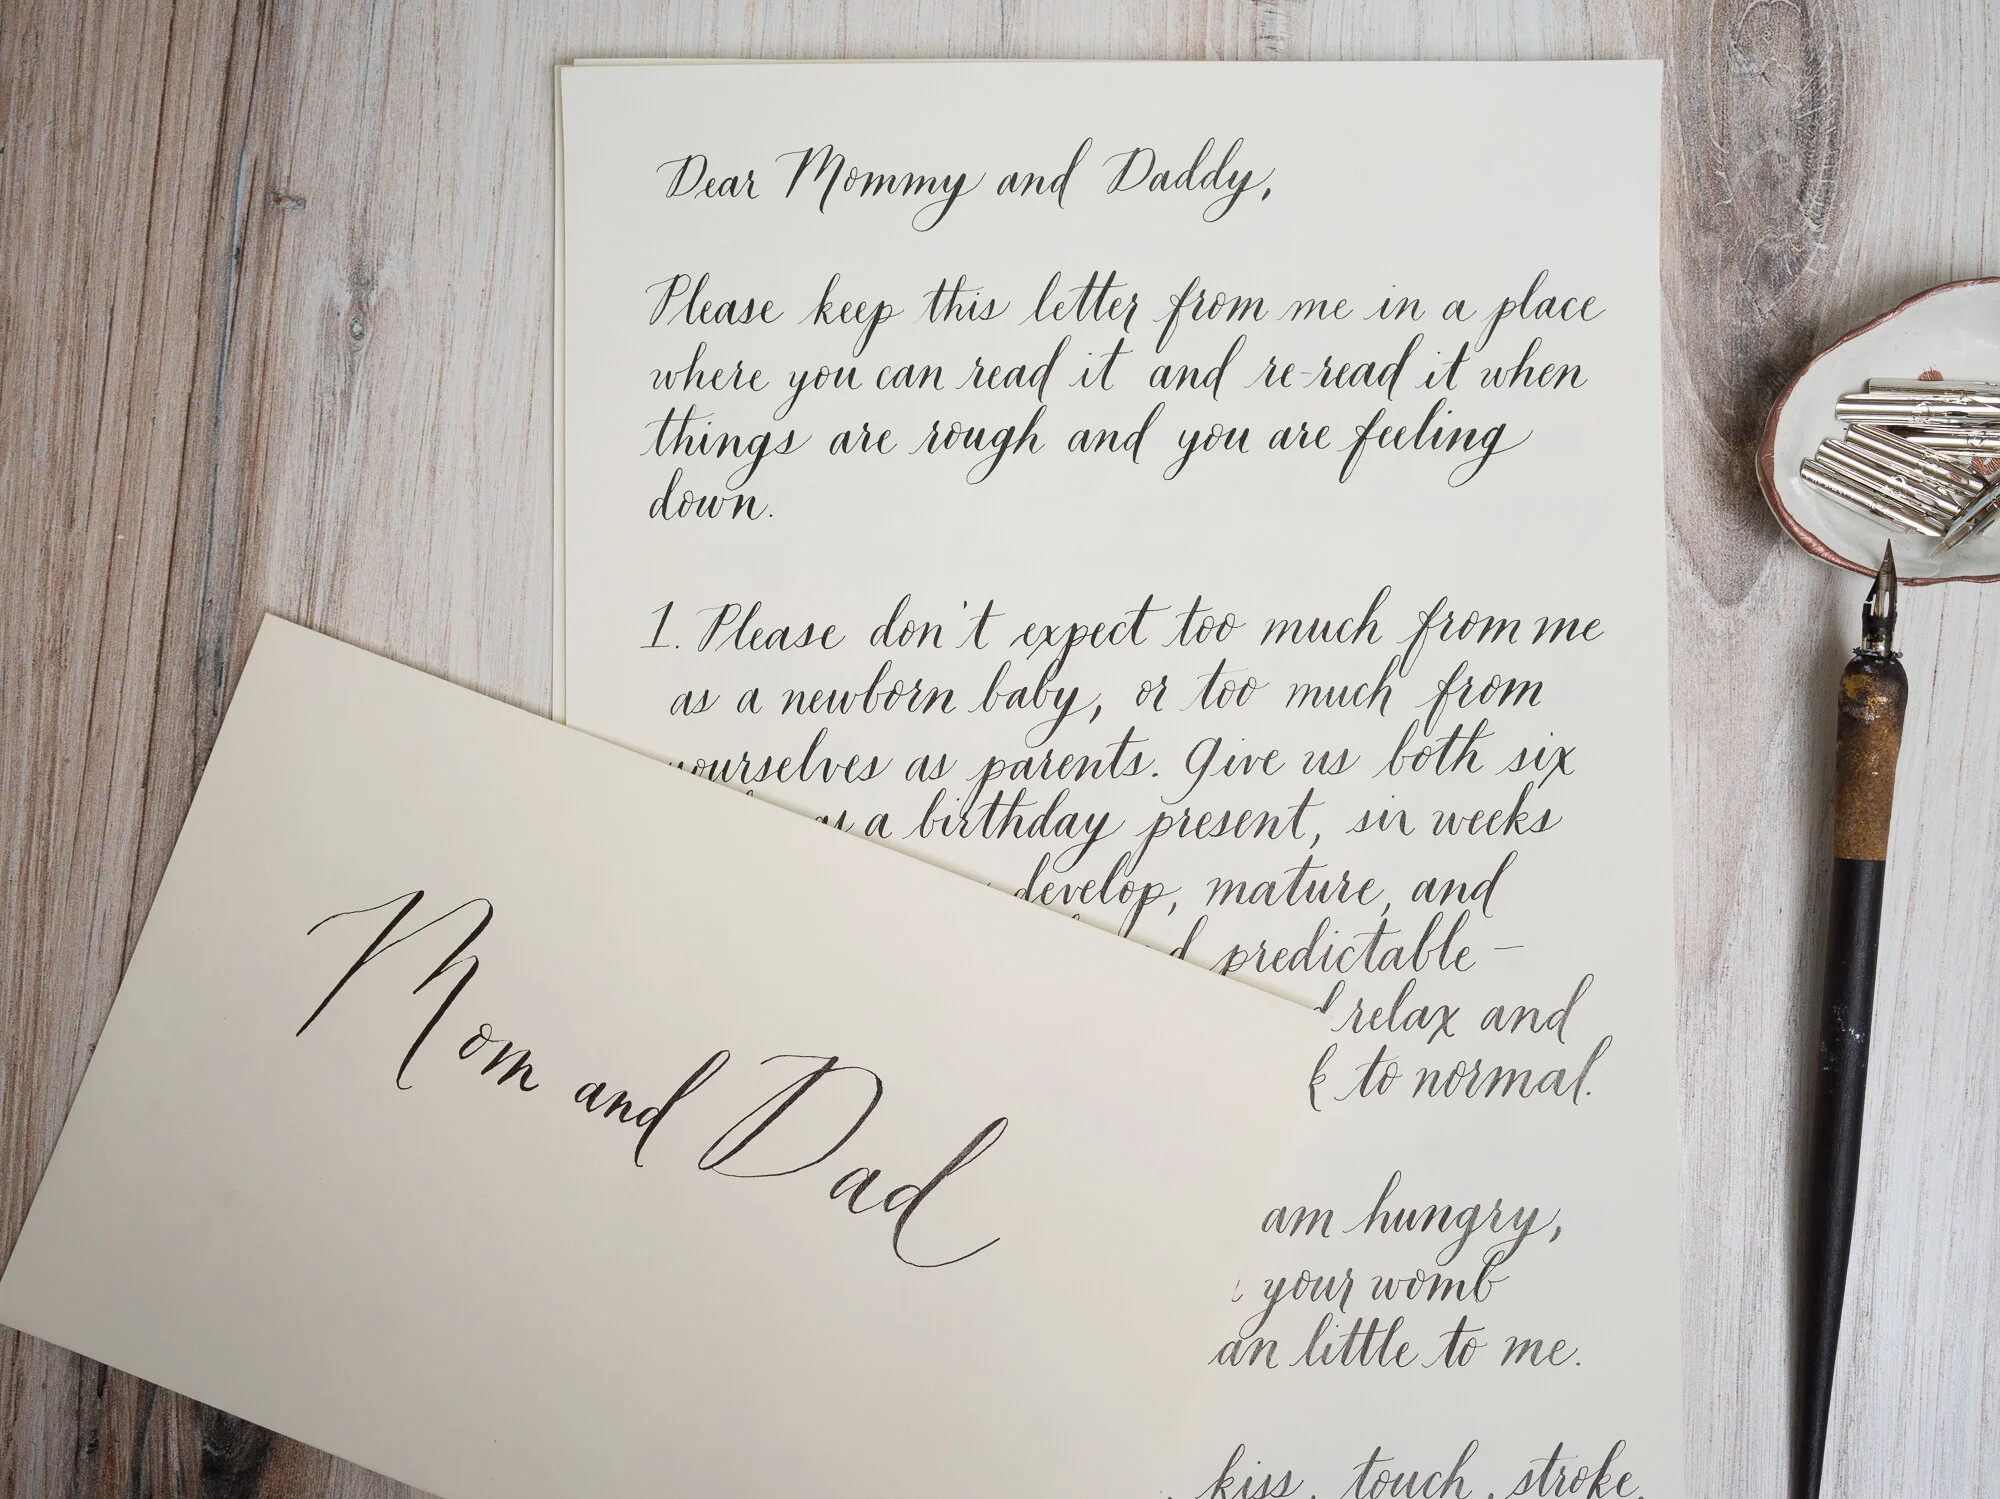 Dear Mommy and Daddy,
Please keep this letter from me in a place
where you can read it and re-read it when
things are rough and you are feeling
down.
1. Please don't expect too much from me
as a newborn baby, or too much from
yourselves as parents. Give us both six
as a birthday present, six weeks
develop, mature, and
predictable –
relax and
to normal.
am hungry,
your womb
little to me.
kiss, touch, stroke,
Mom and Dad